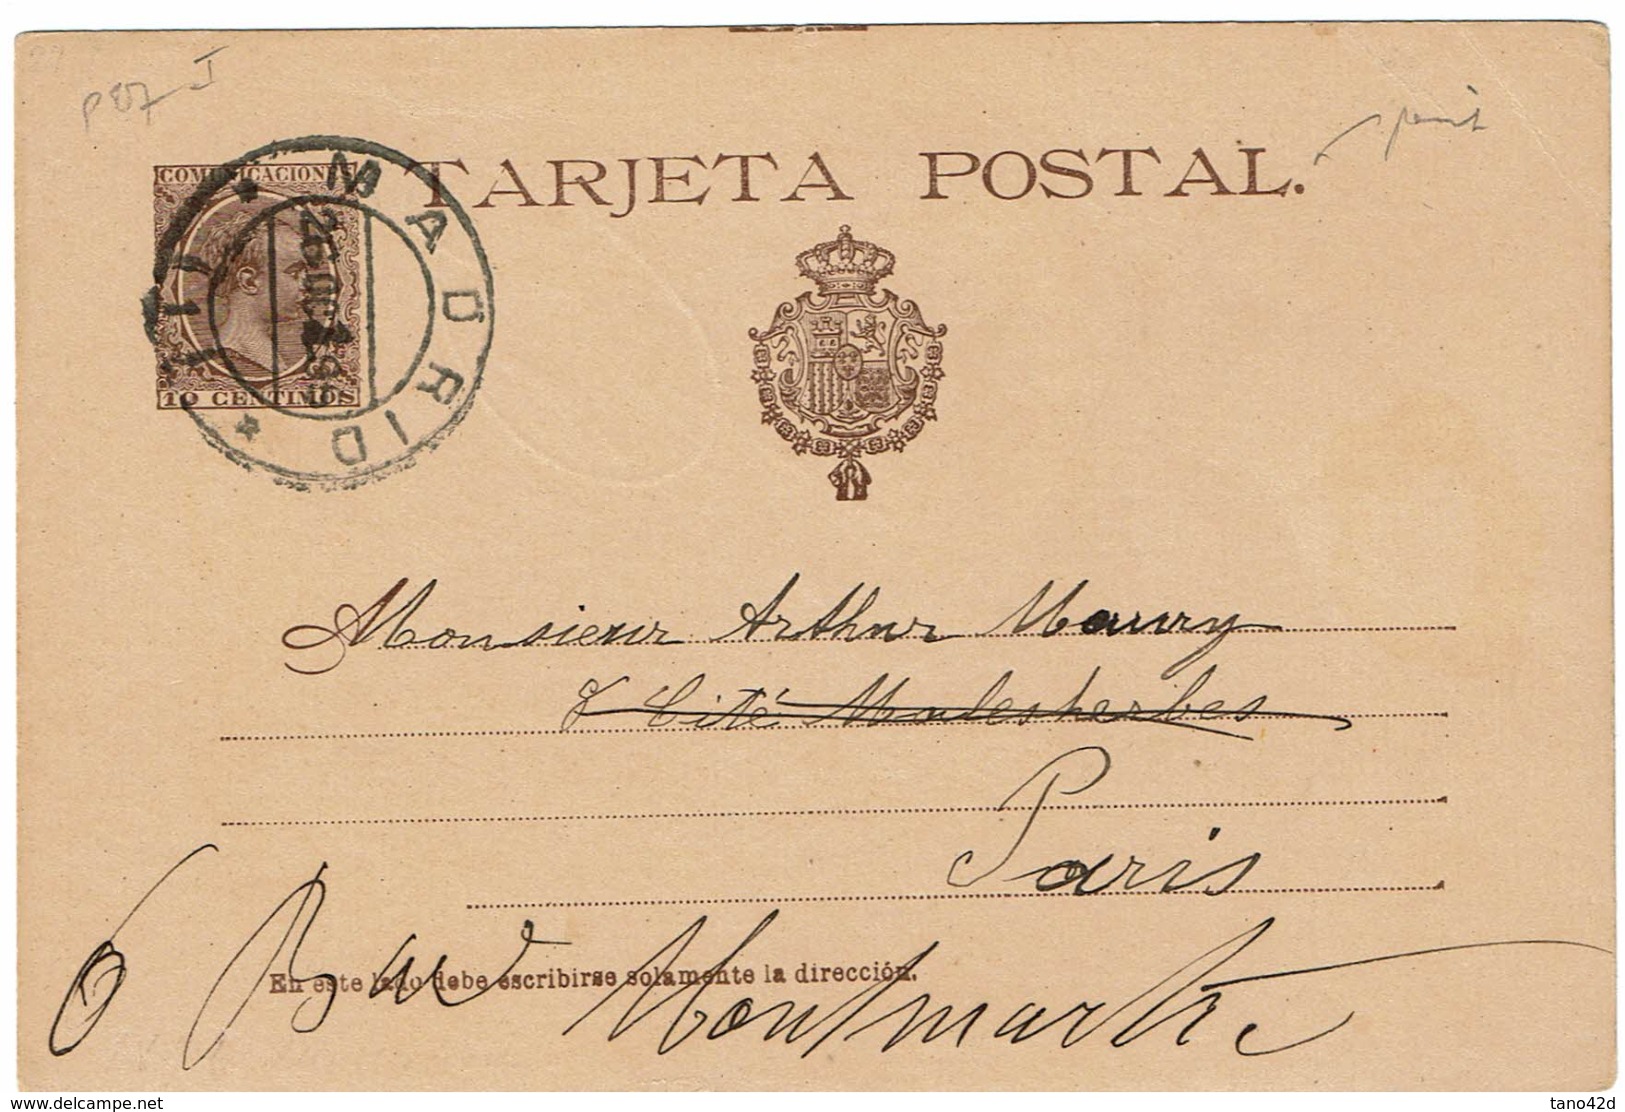 TARJETA POSTAL.
COMUNICACIONES
10 CENTIMOS
MADRID
26 DIC
Monsieur Arthur Maury
8 Cité Malesherbes
Paris
6 Bard Montmartre
En este lado debe escribirse solamente la dirección.
www.delcampe.net
tano42d